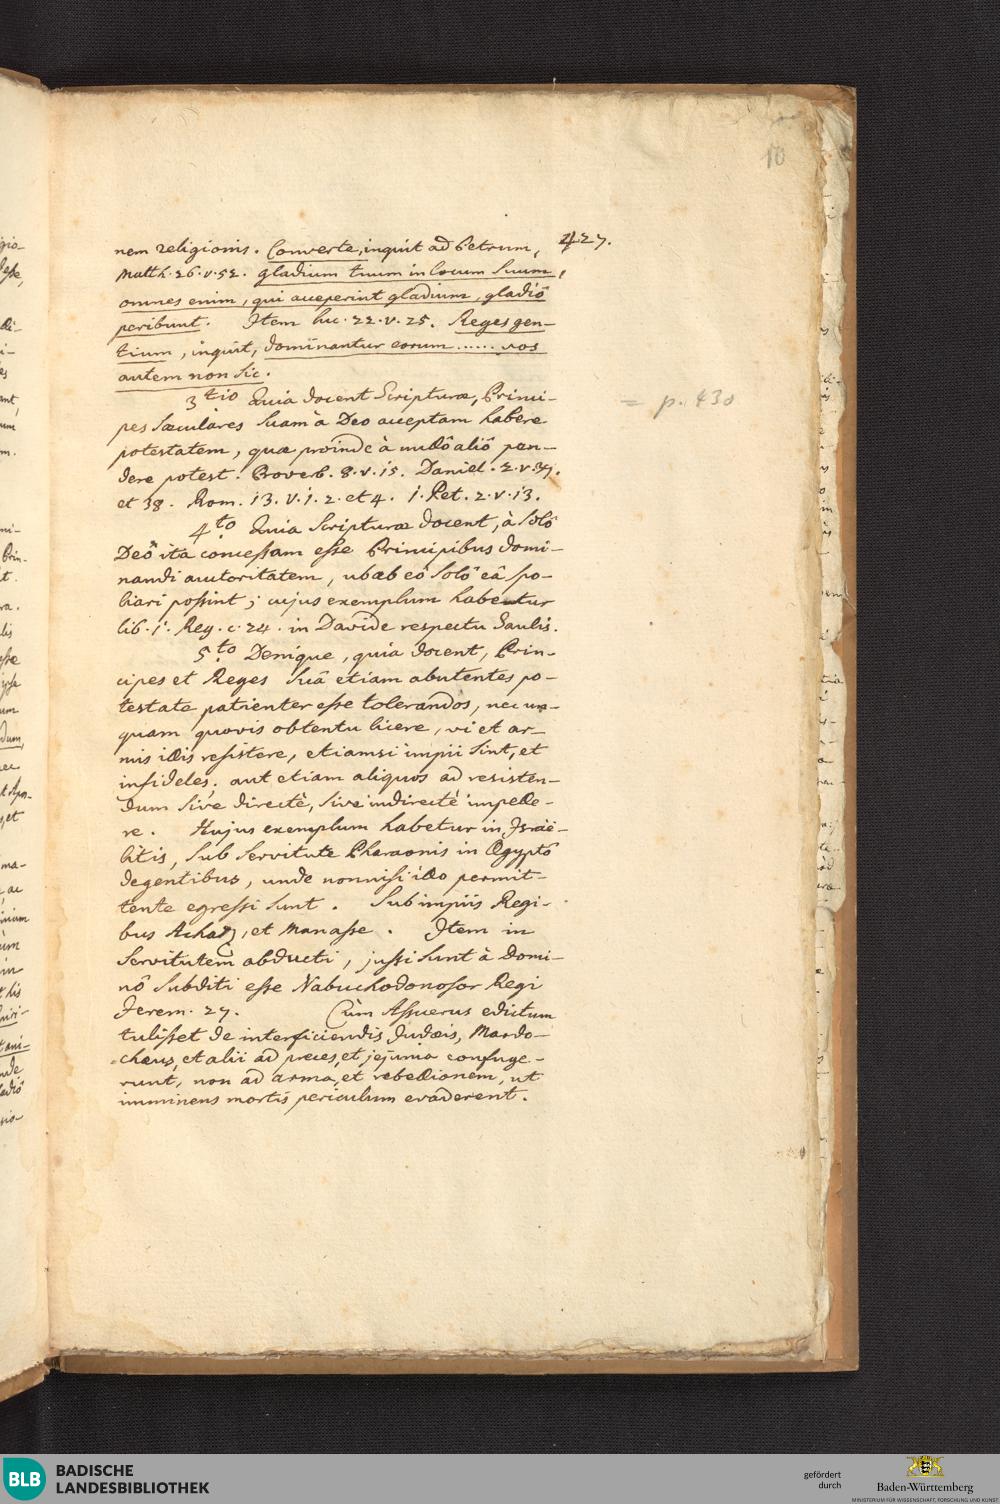 10
427.
nem religionis. Converte, inquit ad Petrum,
Matth. 26. v. 52. gladium tuum in locum suum,
omnes enim, qui acceperint gladium, gladiô
peribunt. Item Luc. 22. v. 25. Reges gen-
tium, inquit, dominantur eorum ...... vos
autem non sic.
3tio Quia docent Scripturæ, Princi-
pes sæculares suam à Deo acceptam habere
potestatem, quæ proinde à nullô aliô pen-
dere potest. Proverb. 8. v. 15. Daniel. 2. v. 37.
et 38. Rom. 13. v. 1. 2. et 4. 1. Pet. 2. v. 13.
= p. 430
4to Quia Scripturæ docent, à solô
Deô ita concessam esse Principibus domi-
nandi autoritatem, ut ab eô solô eâ spo-
liari possint; cujus exemplum habetur
lib. 1. Reg. c. 24. in Davide respectu Saulis.
5to Denique, quia docent, Prin-
cipes et Reges suâ etiam abutentes po-
testate patienter esse tolerandos, nec un-
quam quovis obtentu licere, vi et ar-
mis illis resistere, etiamsi impii sint, et
infideles; aut etiam aliquos ad resisten-
dum sive directè, sive indirectè impelle-
re. Hujus exemplum habetur in Israë-
litis, sub servitute Pharaonis in Ægyptô
degentibus, unde nonnisi illo permit-
tente egressi sunt. Sub impiis Regi-
bus Achaz, et Manasse. Item in
servitutem abducti, jussi sunt à Domi-
nô subditi esse Nabuchodonosor Regi
Jerem. 27. Cùm Assuerus edictum
tulisset de interficiendis Judæis, Mardo-
chæus, et alii ad preces, et jejunia confuge-
runt, non ad arma, et rebellionem, ut
imminens mortis periculum evaderent.
BLB
BADISCHE
LANDESBIBLIOTHEK
gefördert
durch
Baden-Württemberg
MINISTERIUM FÜR WISSENSCHAFT, FORSCHUNG UND KUNST